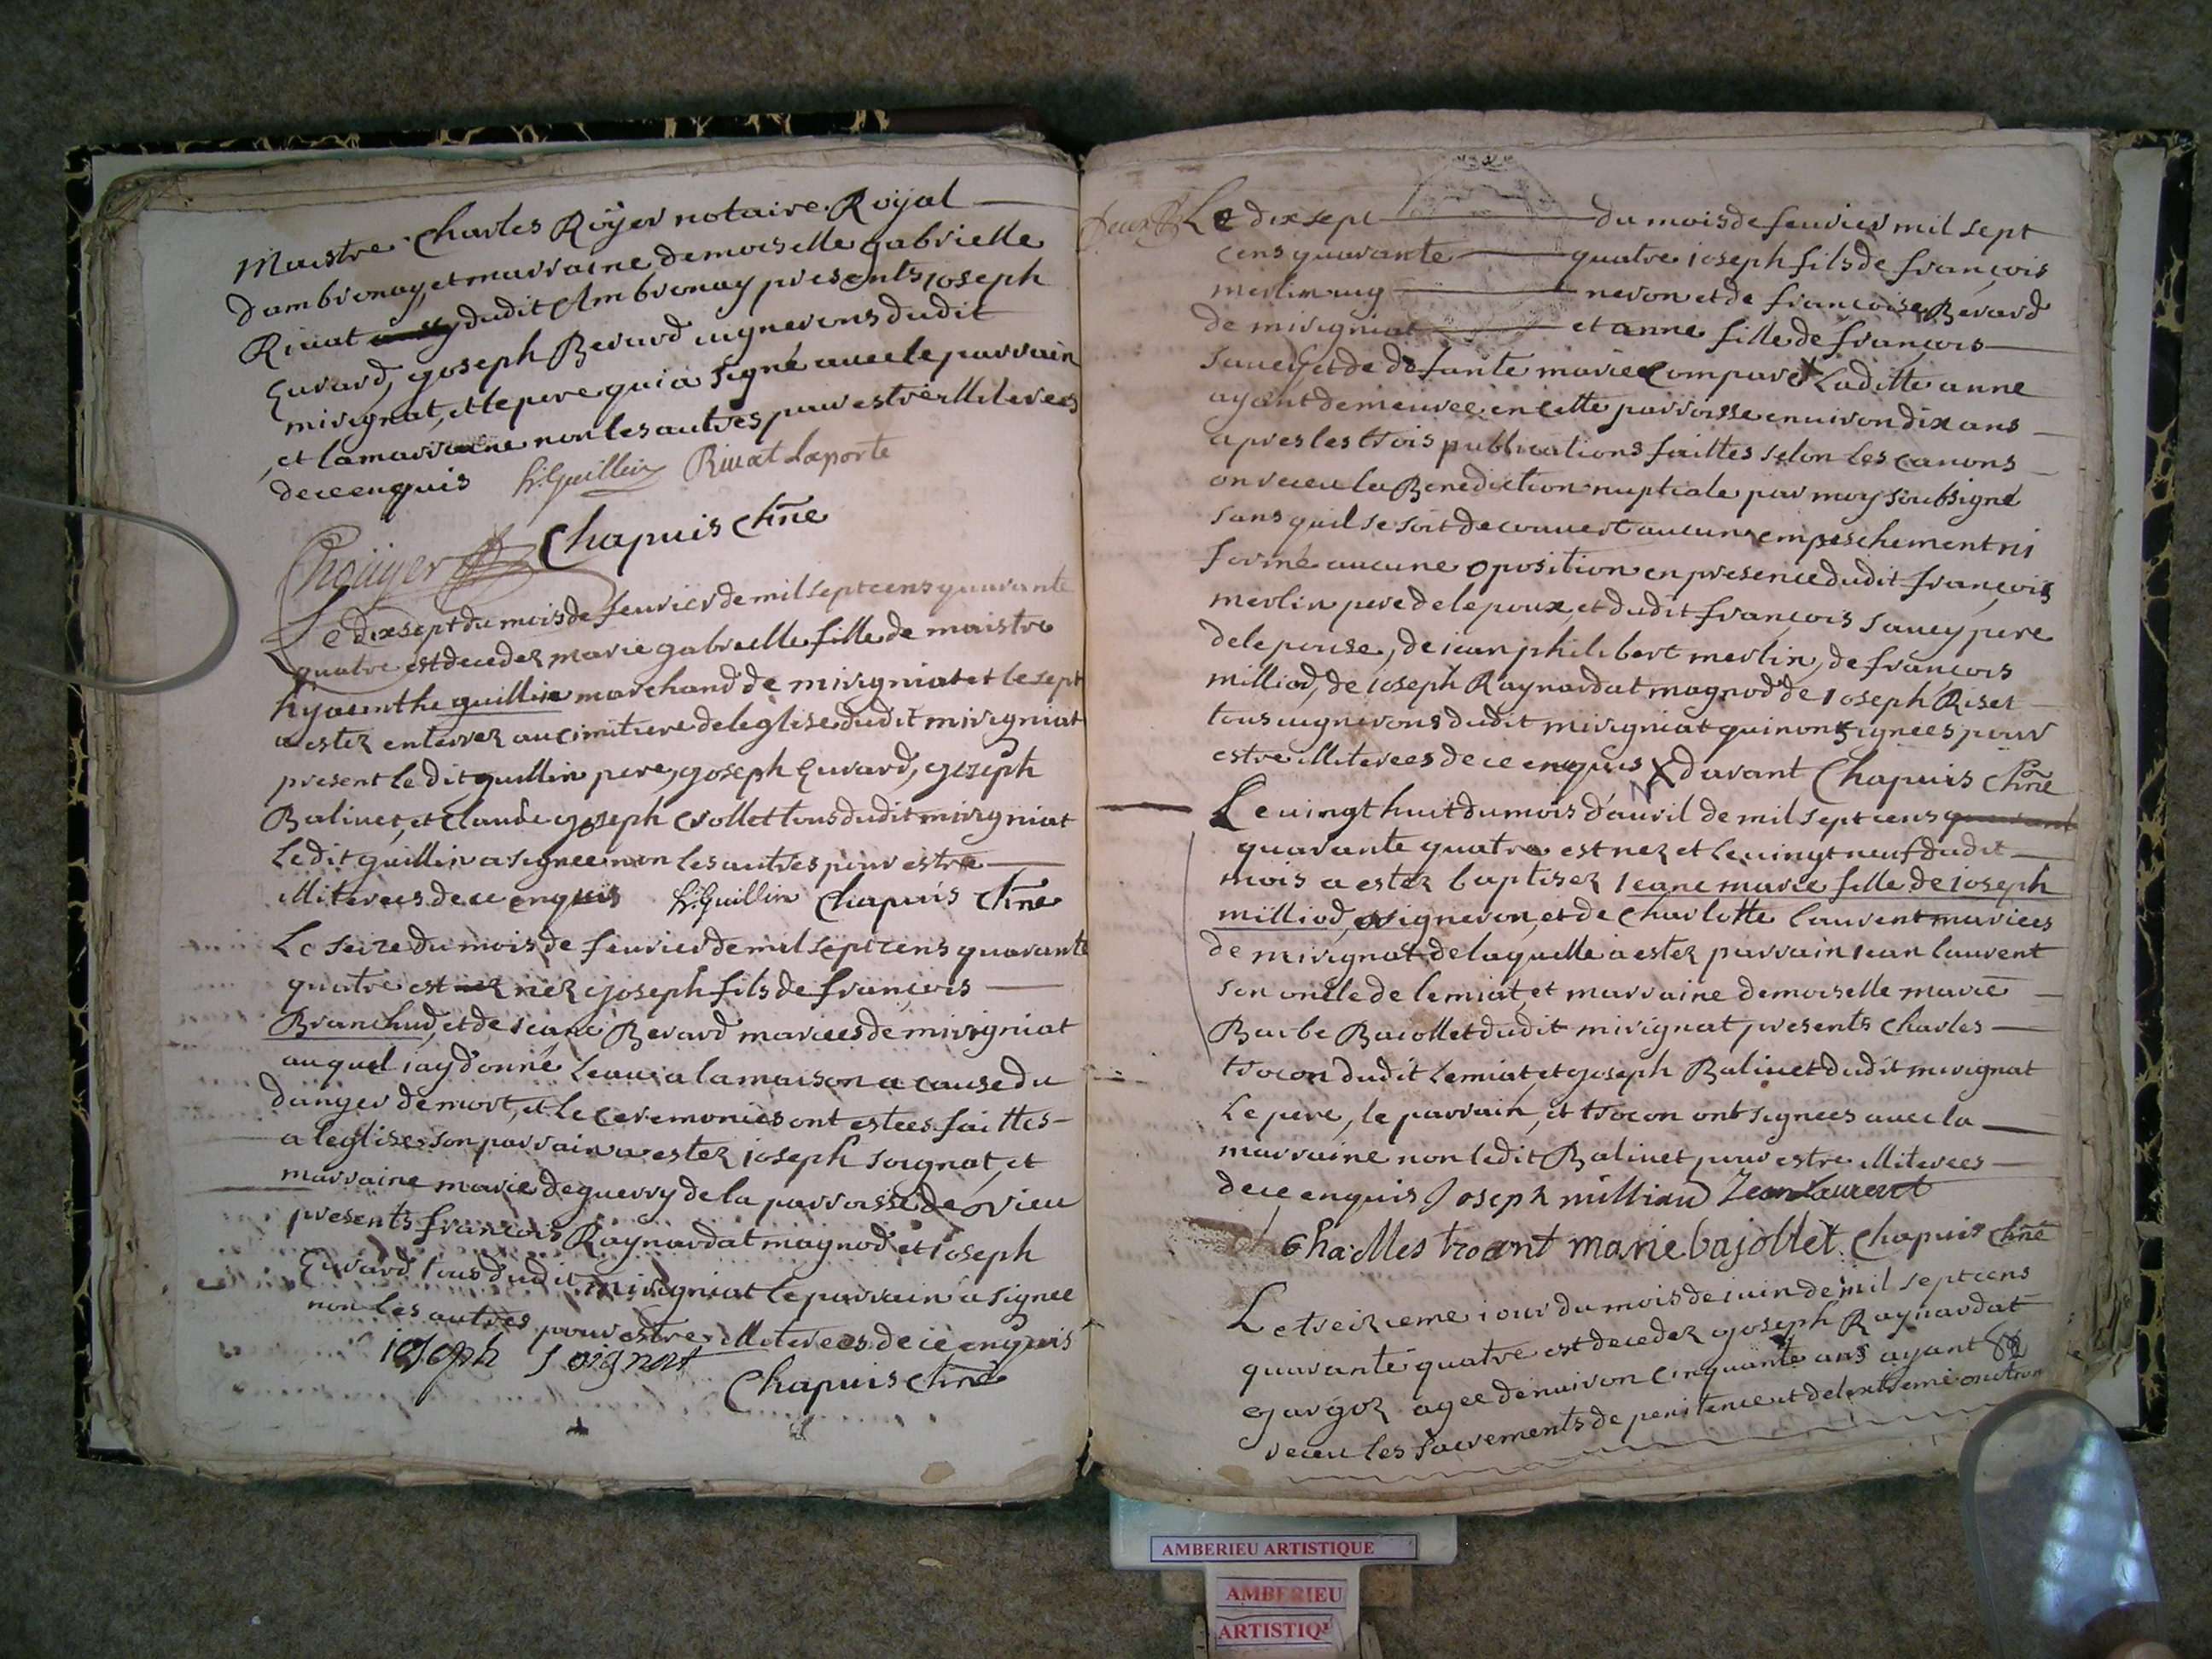 Maistre Charles Roÿer notaire Royal
dambronay, et marraine demoiselle gabrielle
Rivat dudit Ambronay presents joseph
Guvard, joseph Bevard vignerons dudit
mirignat, et le pere qui a signé avec le parrain
et la marraine non les autres pour estre illiterees
de ce enquis h: Guillin Rivat Laporte
Chapuis
Le dix sept du mois de feuvier de mil sept cens quarante
quatre est decedez marie gabrielle fille de maistre
hyacinthe guillin marchand de mirigniat et le sept
a estez enterrez au cimitiere de leglise dudit mirigniat
present le dit guillin pere, joseph Guvard, joseph
Balivet, et Claude joseph Crollet tous dudit mirigniat
le dit guillin a signee non les autres pour estre
illiterees de ce enquis h: Guillin Chapuis
Le seize du mois de feuvier de mil sept cens quarante
quatre est nez joseph fils de françois
Branchud, et de jeane Bevard mariees de mirigniat
auquel iay donné leau a la maison a cause du
danger de mort, et le ceremonies ont estees faittes
a leglise son parrain a estez joseph soignat, et
marraine marie deguerry de la parroisse de vieu
presents françois Raynardat magnod et joseph
Guvard tous dudit mirigniat le parrain a signee
non les autres pour estre illiterees de ce enquis
ioseph soignat
Chapuis
Le dix sept du mois de feuvier mil sept
cens quarante quatre ioseph fils de françois
merlin vig neron et de françoise Bevard
de mirigniat et anne fille de françois
Savey et de defante marie Compare X Laditte anne
ayant demeuree en cette parroisse environ dix ans
apres les trois publications faittes selon les canons
on receu la Benediction nuptiale par moy soubsigné
sans quil se soit decouvert aucun empeschement ni
formé aucune oposition en presence dudit françois
merlin pere de lepoux, et dudit françois Savey pere
de lepouse, de jean philibert merlin, de françois
milliod, de joseph Raynardat magnod de joseph Riset
tous vignerons dudit mirigniat qui non signees pour
estre illiterees de ce enquis X durant Chapuis
Le vingt huit du mois d'auvil de mil sept cens
quarante quatre est nez et le vingt neuf dudit
mois a estez baptisez jeane marie fille de ioseph
milliod, vigneron, et de Charlotte laurent mariees
de mirignat de laquelle a estez parrain jean laurent
son oncle de lemiat, et marraine demoiselle marie
Barbe Bajollet dudit mirignat, presents Charles
trocon dudit lemiat et joseph Balivet dudit mirignat
Le pere, le parrain, et trocon ont signees avec la
marraine non le dit Balivet pour estre illiterees
de ce enquis Joseph milliau Jean Laurent
marie bajollet Chapuis
Le treizieme iour du mois de iuin de mil sept cens
quarante quatre est decedez joseph Raynardat
agee denviron cinquante ans ayant
receu les sacrements de penitence et de lextreme onction
AMBERIEU ARTISTIQUE
AMBERIEU
ARTISTIQU